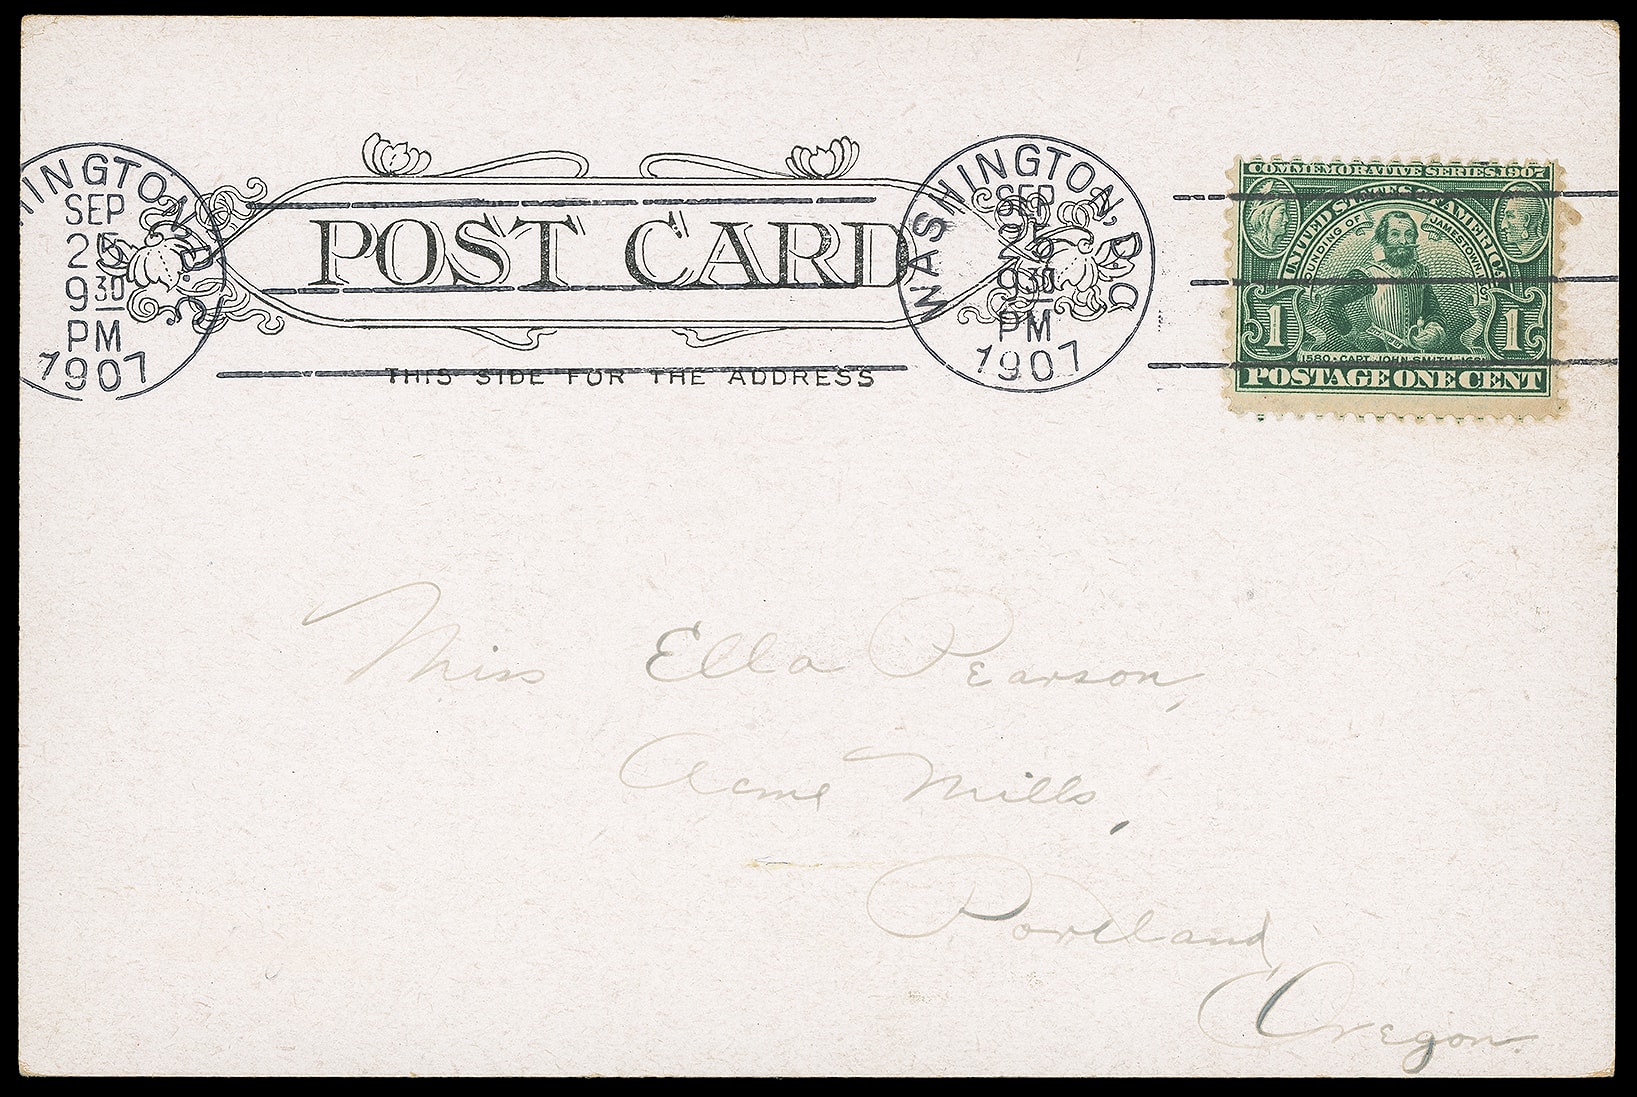 HINGTON, D.C.
SEP
25
9 30
PM
1907
POST CARD
THIS SIDE FOR THE ADDRESS
WASHINGTON, D.C.
SEP
25
9 30
PM
1907
COMMEMORATIVE SERIES 1907
UNITED STATES OF AMERICA
FOUNDING OF JAMESTOWN
1580 · CAPT. JOHN SMITH ·
1 1
POSTAGE ONE CENT
Miss Ella Pearson,
Acme Mills,
Portland,
Oregon.